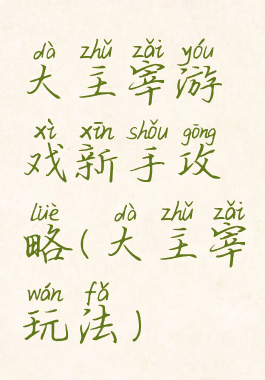 dà zhǔ zǎi yóu
大主宰游
xì xīn shǒu gōng
戏新手攻
lüè dà zhǔ zǎi
略(大主宰
wán fǎ
玩法)